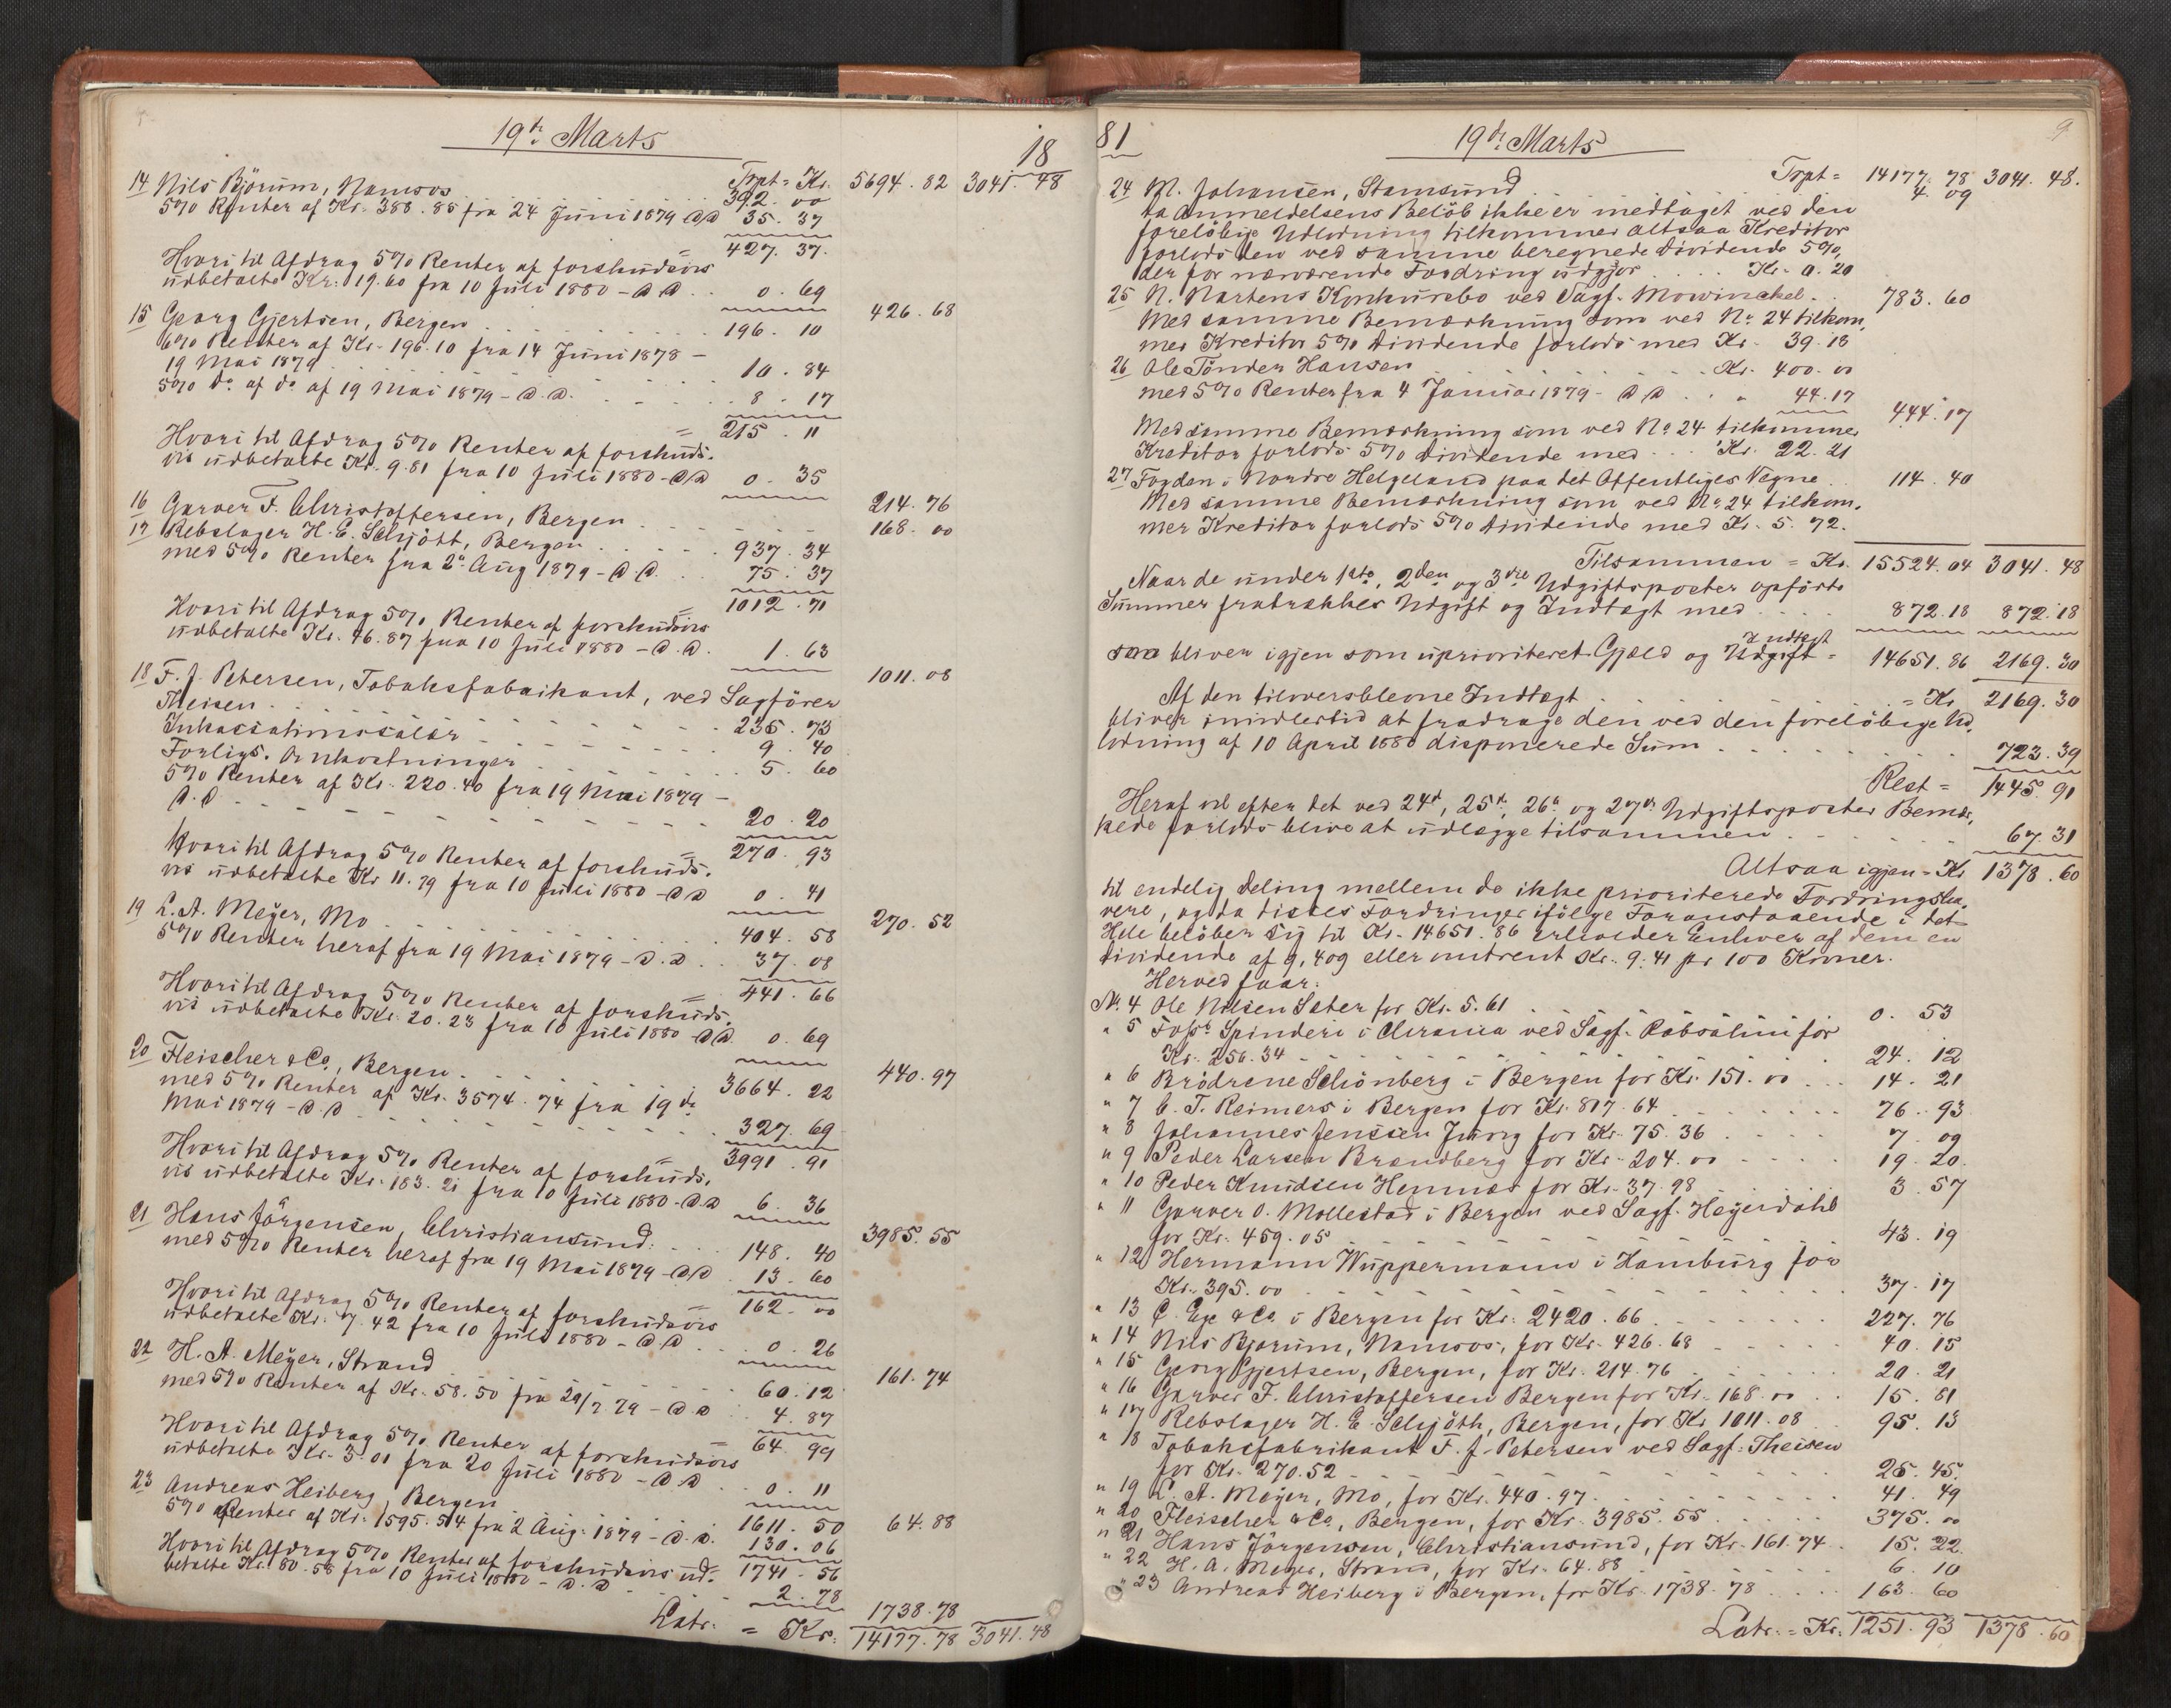 19de Marts
18
Trpt = Kr. 5694.82 3041.48
14 Nils Bjørum, Namsos . . . 392.00
5% Renter af Kr. 388.85 fra 24 Juni 1879 D.D. 35.37
= 427.37.
Hvori til Afdrag 5% Renter af forskudsvis
udbetalte Kr: 19.60 fra 10 Juli 1880 - D.D. . . 0.69
426.68
15 Georg Gjertsen, Bergen . . . 196.10
6% Renter af Kr. 196.10 fra 14 Juni 1878 -
19 Mai 1879 . . . 10.84
5% do af do af 19 Mai 1879 - D.D. . . . 8.17
= 215.11
Hvori til Afdrag 5% Renter af forskuds-
vis udbetalte Kr. 9.81 fra 10 Juli 1880 - D.D. 0.35
214.76
16 Garver F. Christoffersen, Bergen . . . 168.00
17 Rebslager H. E. Schjött, Bergen . . . 937.34
med 5% Renter fra 2d Aug 1879 - D.D. . . 75.37
= 1012.71
Hvori til Afdrag 5% Renter af forskudsvis
udbetalte Kr. 46.87 fra 10 Juli 1880 - D.D. 1.63
1011.08
18 F. J. Petersen, Tobaksfabrikant, ved Sagfører
Theisen . . . 235.73
Inkassationssalær . . . 9.40
Forligs. Omkostninger . . . 5.60
5% Renter af Kr. 220.40 fra 19 Mai 1879 -
D.D. . . . 20.20
= 270.93
Hvori til Afdrag 5% Renter af forskuds-
vis udbetalte Kr 11.79 fra 10 Juli 1880 - D.D 0.41
270.52
19 L. A. Meyer, Mo . . . 404.58
5% Renter heraf fra 19 Mai 1879 - D.D . . 37.08
= 441.66
Hvori til Afdrag 5% Renter af forskuds-
vis udbetalte Kr. 20.23 fra 10 Juli 1880 D.D. 0.69
440.97
20 Fleischer & Co, Bergen . . . 3664.22
med 5% Renter af Kr. 3574.74 fra 19de
Mai 1879 - D.D . . . 327.69
= 3991.91
Hvori til Afdrag 5% Renter af forskuds-
vis udbetalte Kr. 183.21 fra 10 Juli 1880 - D.D 6.36
3985.55
21 Hans Jørgensen, Christiansund . . . 148.40
med 5% Renter heraf fra 19 Mai 1879 - D.D . 13.60
= 162.00
Hvori til Afdrag 5% Renter af forskudsvis
udbetalte Kr. 7.42 fra 10 Juli 1880 - D.D . . . 0.26
161.74
22 H. A. Meyer, Strand . . . 60.12
med 5% Renter af Kr. 58.50 fra 29/7 79 - D.D . . 4.87
= 64.99
Hvori til Afdrag 5% Renter af forskudsvis
udbetalte Kr. 3.01 fra 20 Juli 1880 - D.D . . 0.11
64.88
23 Andreas Heiberg, Bergen . . . 1611.50
5% Renter af Kr. 1595.54 fra 2 Aug. 1879 - D.D. 130.06
1741.56
Hvori til Afdrag 5% Renter af forskudsvis ud-
betalte Kr. 80.58 fra 10 Juli 1880 - D.D . . 2.78
1738.78
Latr. = Kr. 14177.78 3041.48
81
19de Marts
9
Trpt = 14177.78 3041.48.
24 M. Johansen, Stamsund . . . 4.09
da Anmeldelsens Beløb ikke er medtaget ved den
foreløbige Udlodning tilkommer altsaa Kreditor
forlods den ved samme beregnede Dividende 5%,
der for nærværende Fordring udgjør . . . Kr. 0.20
25 N. Martens Konkursbo ved Sagf. Mowinckel . . 783.60
Med samme Bemærkning som ved No 24 tilkom-
mer Kreditor 5% Dividende forlods med Kr. 39.18
26 Ole Tønder Hansen . . . Kr. 400.00
med 5% Renter fra 4 Januar 1879 - D.D . . " 44.17
444.17
Med samme Bemærkning som ved No 24 tilkommer
Kreditor forlods 5% Dividende med . . . Kr. 22.21
27 Fogden i Nordre Helgeland paa det Offentliges Vegne . . 114.40
Med samme Bemærkning som ved No 24 tilkom-
mer Kreditor forlods 5% Dividende med Kr. 5.72.
Tilsammen = Kr. 15524.04 3041.48
Naar de under 1ste, 2den og 3die Udgiftsposter opførte
Summer fratrækkes Udgift og Indtægt med . . . 872.18 872.18
Indtægt
som bliver igjen som uprioriteret Gjæld og Udgift = 14651.86 2169.30
Af den tiloversblevne Indtægt . . . = Kr 2169.30
bliver imidlertid at fradrage den ved den foreløbige Ud-
lodning af 10 April 1880 disponerede Sum . . . 723.39
Rest = 1445.91
Heraf vil efter det ved 24de, 25de, 26de og 27de Udgiftsposter Bemær-
kede forlods blive at udlægge tilsammen . . . 67.31
Altsaa igjen = Kr 1378.60
til endelig Deling mellem de ikke prioriterede Fordringsha-
vere, og da disses Fordringer ifølge Foranstaaende i det
Hele beløber sig til Kr. 14651.86 erholder Enhver af dem en
Dividende af 9,409 eller omtrent Kr. 9.41 pr 100 Kroner.
Herved faar:
No. 4 Ole Nilsen Sæter for Kr. 5.61 . . . 0.53
" 5 Foss Spinderi i Chrania ved Sagf. Rabsalm for
Kr. 256.34 . . . 24.12
" 6 Brødrene Schönberg i Bergen for Kr. 151.00 . . . 14.21
" 7 C. T. Reimers i Bergen for Kr. 817.64 . . . 76.93
" 8 Johannes Jenssen Juvig for Kr. 75.36 . . . 7.09
" 9 Peder Larsen Brændberg for Kr. 204.00 . . . 19.20.
" 10 Peder Knudsen Hemnæs for Kr. 37.98 . . . 3.57
" 11 Garver O. Mollestad i Bergen ved Sagf. Heyerdahl
for Kr. 459.05 . . . 43.19
" 12 Hermann Wuppermann i Hamburg for
Kr. 395.00 . . . 37.17
" 13 C. Ege & Co. i Bergen for Kr. 2420.66 . . . 227.76
" 14 Nils Bjørum, Namsos, for Kr. 426.68 . . . 40.15
" 15 Georg Gjertsen, Bergen, for Kr. 214.76 . . . 20.21
" 16 Garver F. Christoffersen Bergen for Kr. 168.00 . . 15.81
" 17 Rebslager H. E. Schjöth, Bergen, for Kr 1011.08 . . 95.13
" 18 Tobaksfabrikant F. J. Petersen ved Sagf: Theisen
for Kr. 270.52 . . . 25.45.
" 19 L. A. Meyer, Mo, for Kr. 440.97 . . . 41.49
" 20 Fleischer & Co, Bergen, for Kr. 3985.55 . . . 375.00
" 21 Hans Jørgensen, Christiansund, for Kr. 161.74 . . 15.22.
" 22 H. A. Meyer, Strand, for Kr. 64.88 . . . 6.10
" 23 Andreas Heiberg i Bergen, for Kr. 1738.78 . . . 163.60
Latr. = Kr. 1251.93 1378.60